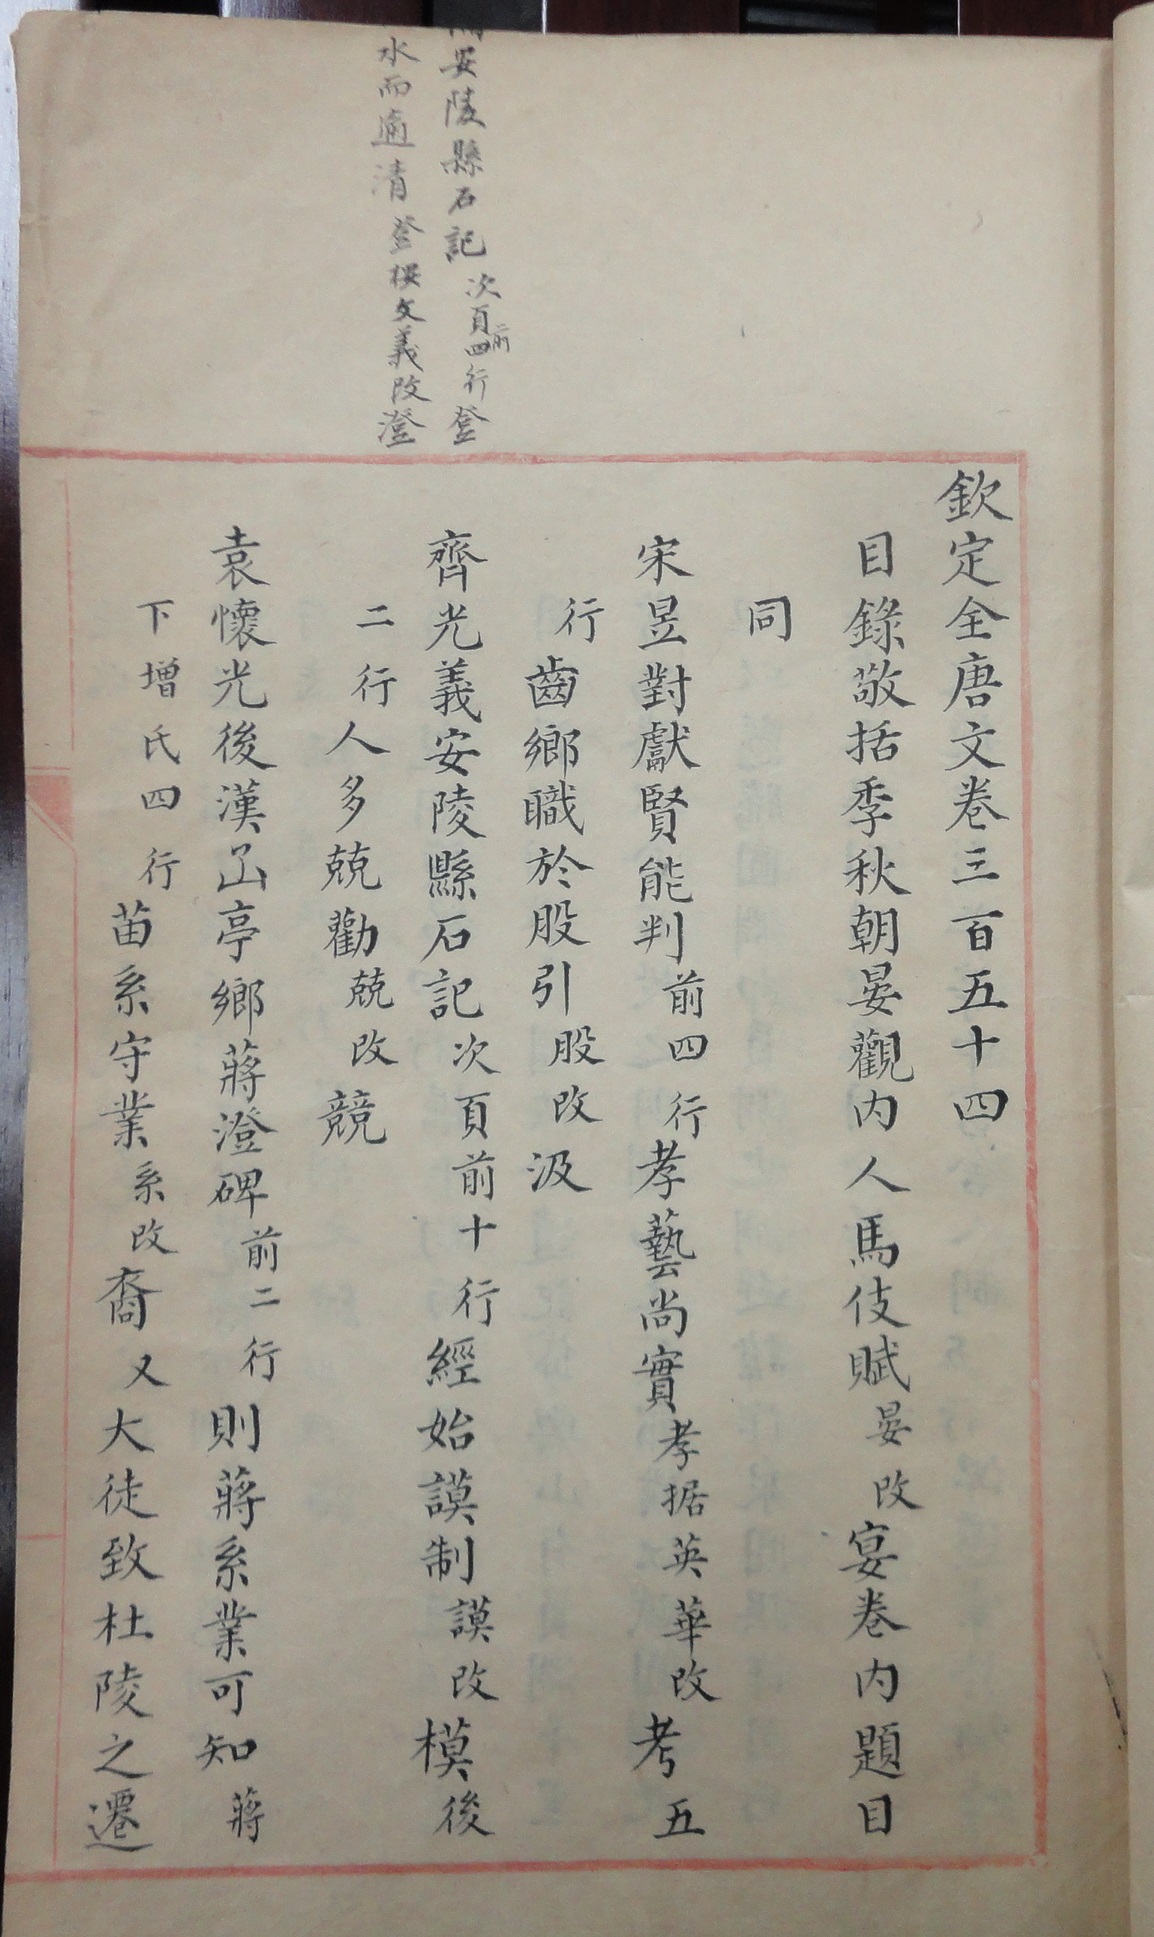 安陵縣石記次頁前四行登
水而逾清登楔文義改澄
欽定全唐文卷三百五十四
目錄敬括季秋朝晏觀內人馬伎賦晏改宴卷內題目
同
宋昱對獻賢能判前四行孝藝尚實孝据英華改考五
行齒鄉職於股引股改汲
齊光義安陵縣石記次頁前十行經始謨制謨改模後
二行人多兢勸兢改競
袁懷光後漢㔾亭鄉蔣澄碑前二行則蔣系業可知蔣
下增氏四行苗系守業系改裔又大徒致杜陵之遷